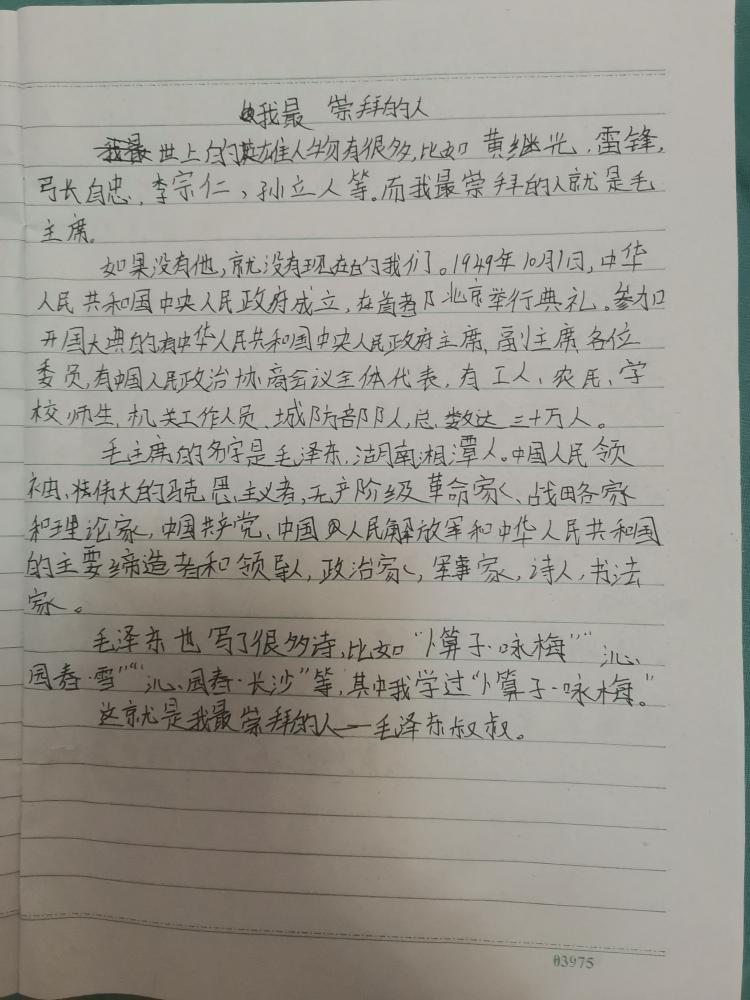 我最崇拜的人
世上的英雄人物有很多,比如黄继光、雷锋,
张自忠、李宗仁、孙立人等。而我最崇拜的人就是毛
主席。
如果没有他,就没有现在的我们。1949年10月1日,中华
人民共和国中央人民政府成立,在首都北京举行典礼。参加
开国大典的有中华人民共和国中央人民政府主席、副主席、各位
委员,有中国人民政治协商会议全体代表,有工人、农民、学
校师生、机关工作人员、城防部队人,总数达三十万人。
毛主席的名字是毛泽东,湖南湘潭人。中国人民领
袖、伟大的马克思主义者,无产阶级革命家、战略家
和理论家,中国共产党、中国人民解放军和中华人民共和国
的主要缔造者和领导人,政治家,军事家,诗人,书法
家。
毛泽东也写了很多诗,比如“卜算子·咏梅”“沁
园春·雪”“沁园春·长沙”等,其中我学过“卜算子·咏梅。”
这就是我最崇拜的人—毛泽东叔叔。
03975